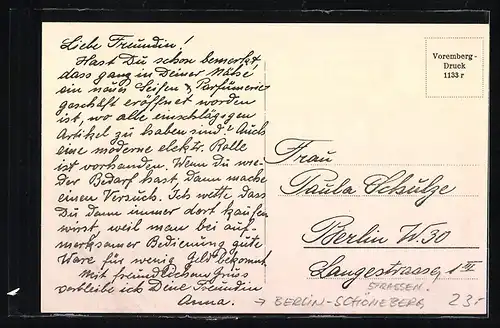 Liebe Freundin!
Hast Du schon bemerkt,
dass ganz in Deiner Nähe
ein neues Seifen & Parfümerie
geschäft eröffnet worden
ist, wo alle einschlägigen
Artikel zu haben sind? Auch
eine moderne elektr. Rolle
ist vorhanden. Wenn Du wie-
der Bedarf hast, dann mache
einen Versuch. Ich wette, dass
Du dann immer dort kaufen
wirst, weil man bei auf-
merksamer Bedienung gute
Ware für wenig Geld bekommt.
Mit freundlichem Gruss
verbleibe ich Deine Freundin
Anna.
Voremberg-
Druck
1133 r
Frau
Paula Schulze
Berlin W. 30
Langestrasse, 1 III
STRASSEN.
→ BERLIN-SCHÖNEBERG
23.-